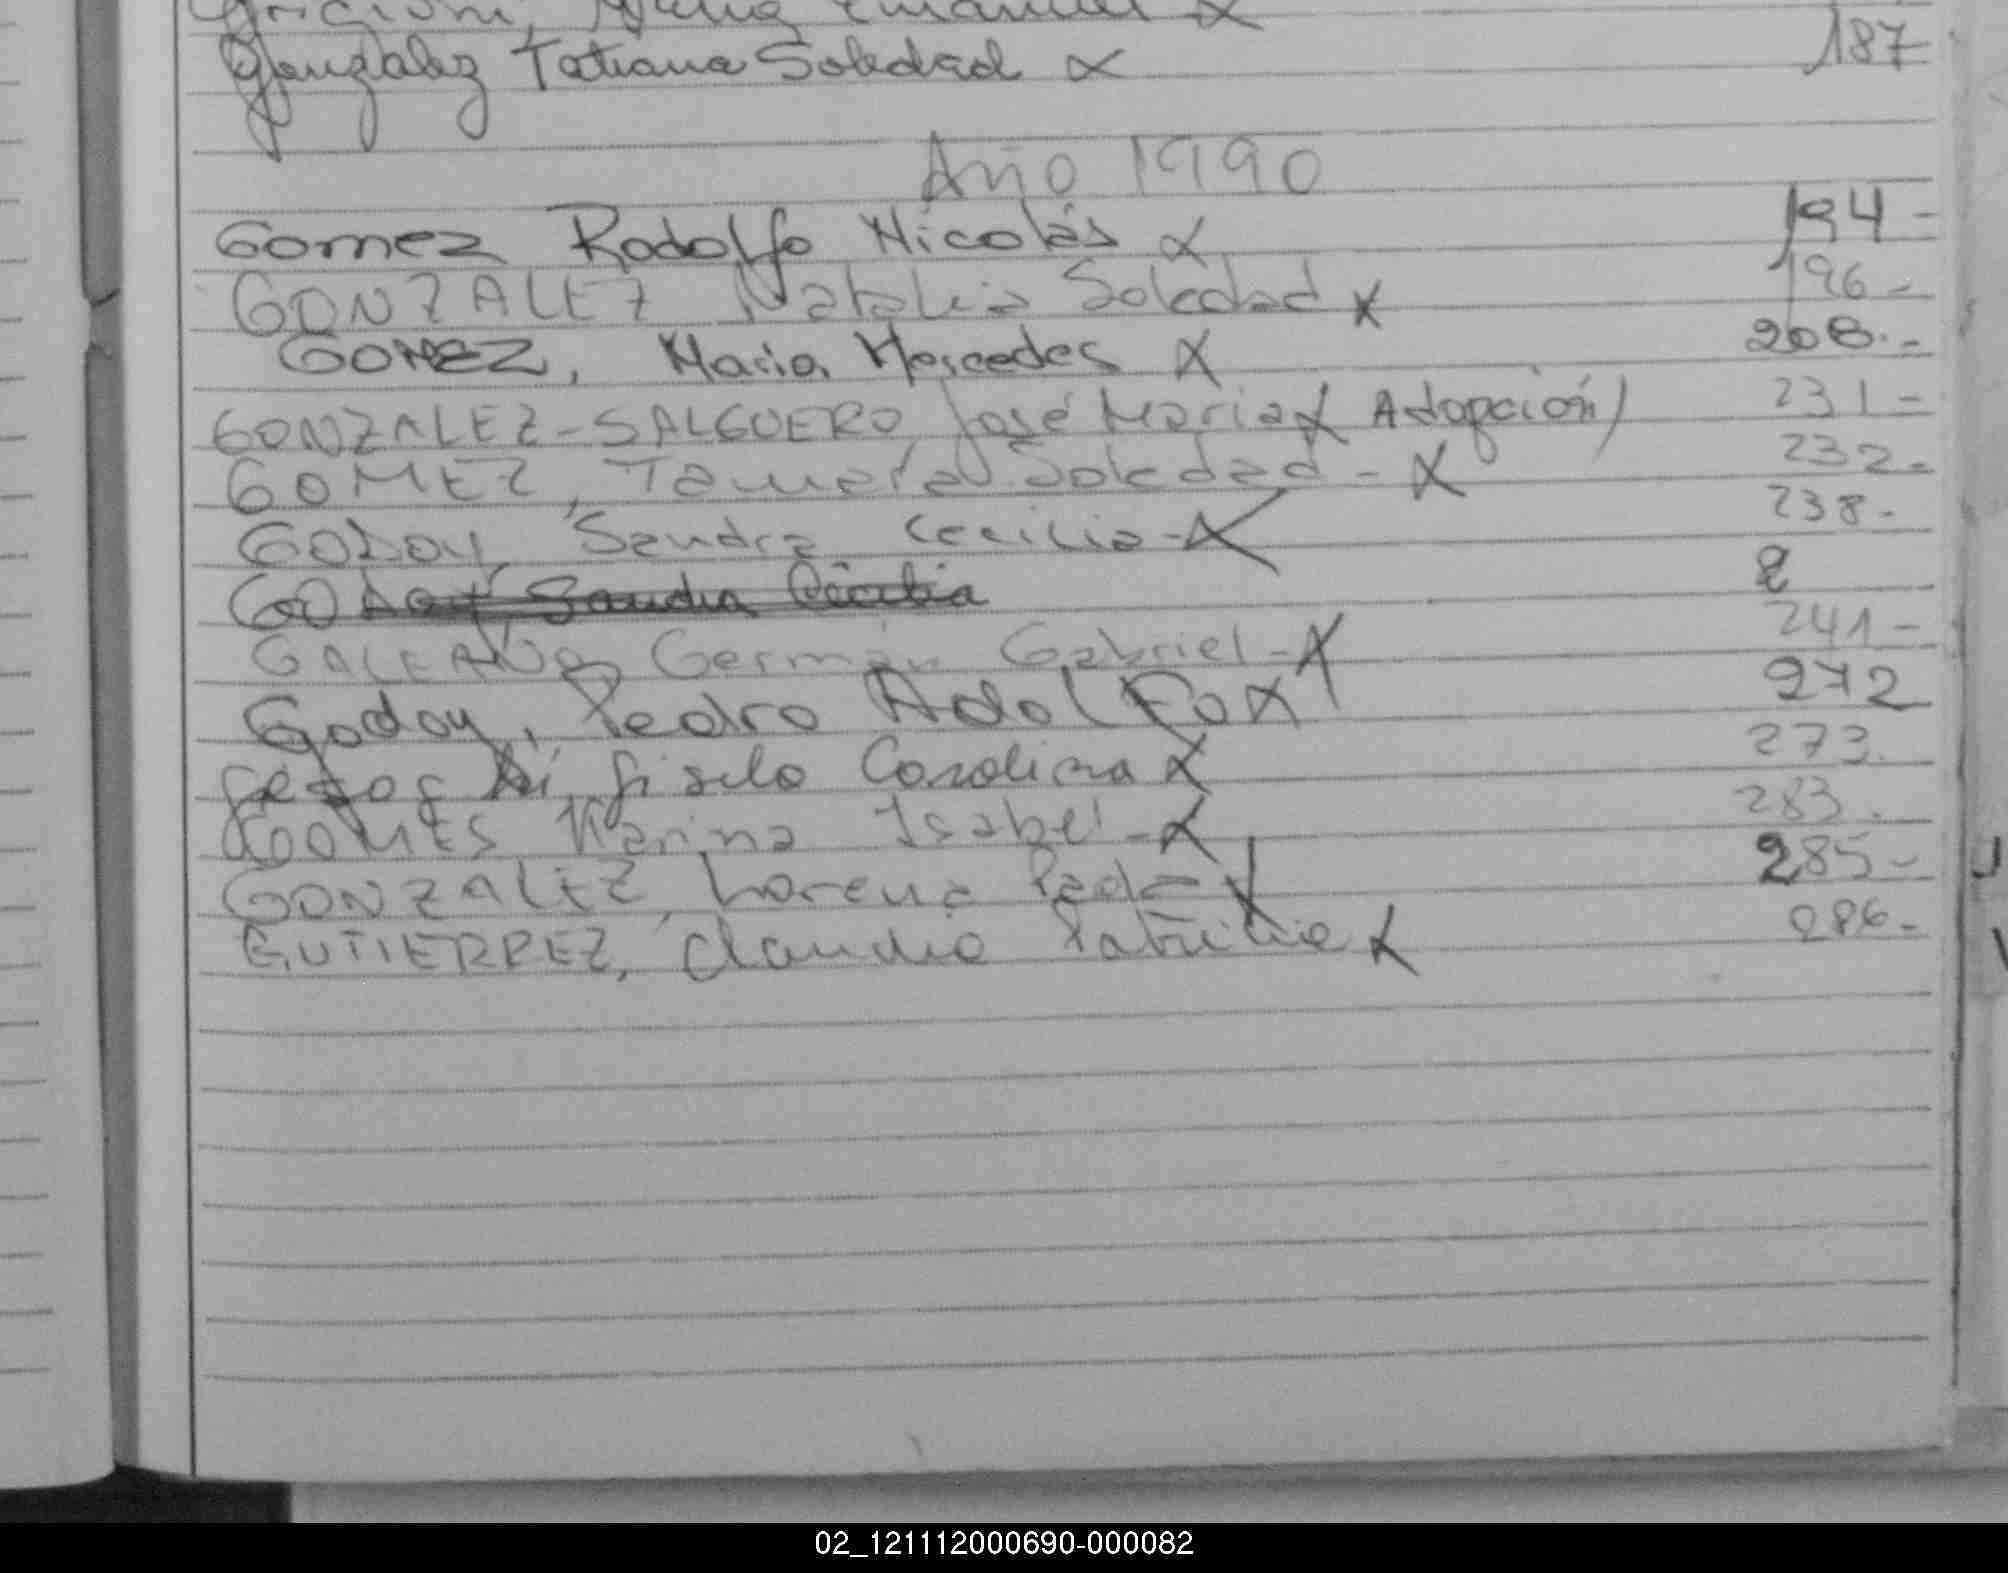 Emanuel x
Gonzalez Tatiana Soledad x 187
Año 1990
Gomez Rodolfo Nicolás x 194-
GONZALEZ Natalia Soledad x 196-
GOMEZ, Maria Mercedes x 208.-
GONZALEZ-SALGUERO, José Maria x Adopción) 231-
GOMEZ, Tamara Soledad - x 232-
GODOY, Sandra Cecilia - x 238-
GODOY Sandra Cecilia 2
GALEANO, Germán Gabriel - x 241-
Godoy, Pedro Adolfo x 272
Gisela Carolina x 273.
GOMES Karina Isabel - x 283.
GONZALEZ, Lorena Paola x 285-
GUTIERREZ, Claudia Patricia x 286-
02_121112000690-000082